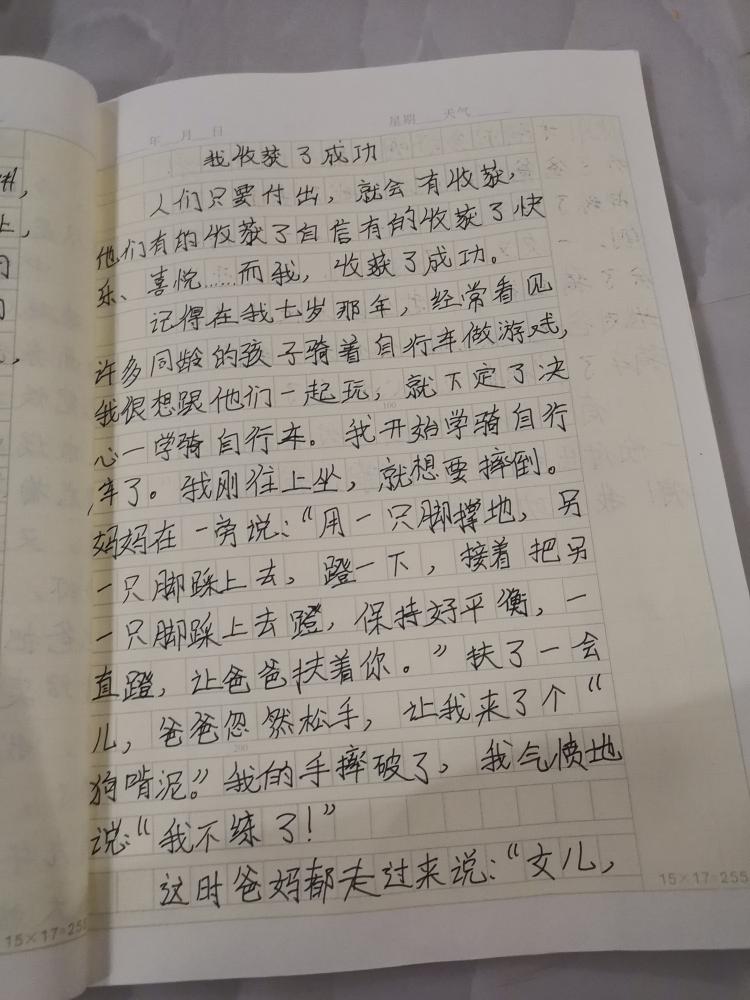 年 月 日 星期 天气
我收获了成功
人们只要付出，就会有收获，
他们有的收获了自信有的收获了快
乐、喜悦……而我，收获了成功。
记得在我七岁那年，经常看见
许多同龄的孩子骑着自行车做游戏，
我很想跟他们一起玩，就下定了决
心一学骑自行车。我开始学骑自行
车了。我刚往上坐，就想要摔倒。
妈妈在一旁说：“用一只脚撑地，另
一只脚踩上去，蹬一下，接着把另
一只脚踩上去蹬，保持好平衡，一
直蹬，让爸爸扶着你。”扶了一会
儿，爸爸忽然松手，让我来了个“
狗啃泥。”我的手摔破了，我气愤地
说：“我不练了！”
这时爸妈都走过来说：“女儿，
15×17=255
15×17=255
100
200